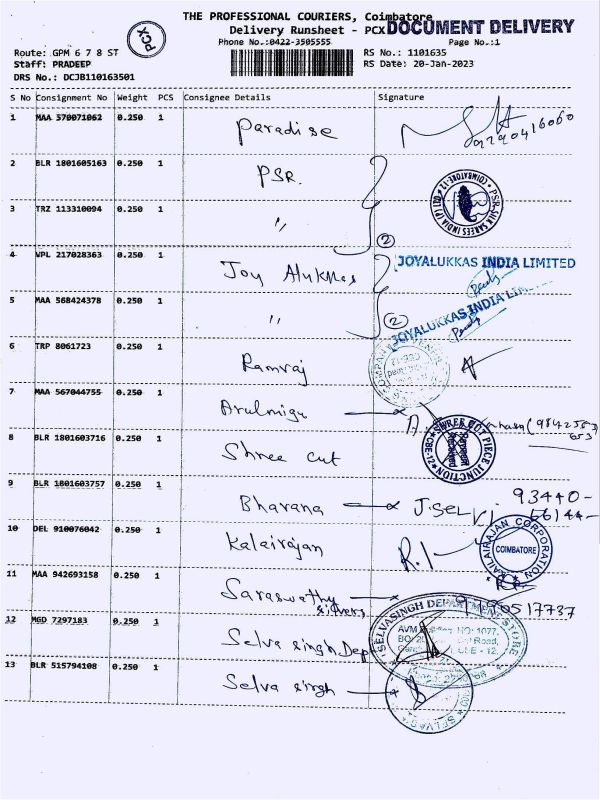 THE PROFESSIONAL COURIERS, Coimbatore
Delivery Runsheet - PCX DOCUMENT DELIVERY
PCX
Phone No.:0422-3505555 Page No.:1
Route: GPM 6 7 8 ST RS No.: 1101635
Staff: PRADEEP RS Date: 20-Jan-2023
DRS No.: DCJB110163501
S No Consignment No Weight PCS Consignee Details Signature
1 MAA 570071062 0.250 1 Paradise
2 BLR 1801605163 0.250 1 PSR. PSR SILK SAREES INDIA (P) LTD COIMBATORE-12
3 TRZ 113310094 0.250 1 〃 2
4 VPL 217028363 0.250 1 Joy Alukkas JOYALUKKAS INDIA LIMITED
5 MAA 568424378 0.250 1 〃 2 JOYALUKKAS INDIA
6 TRP 8061723 0.250 1 Ramraj
7 MAA 567044755 0.250 1 Arulmigu
8 BLR 1801603716 0.250 1 Shree cut SHREE CUT PIECE JUNCTION CBE-12
9 BLR 1801603757 0.250 1 Bhavana J.Selvi 93440-
66144
10 DEL 910076042 0.250 1 Kalairajan R. KALAIRAJAN CORPORATION COIMBATORE
11 MAA 942693158 0.250 1 Saraswathy silvers 9790517737
12 MGD 7297183 0.250 1 Selva singh Dep SELVASINGH DEPARTMENT STORE
13 BLR 515794108 0.250 1 Selva singh SELVAS